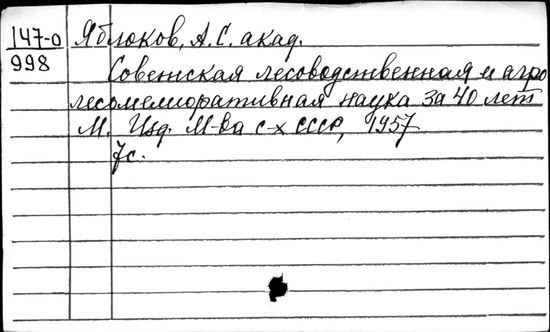 147-0 Яблоков, А.С. акад.
998
Советская лесоводственная и агро
лесомелиоративная наука за 40 лет
М. Изд. М-ва с-х СССР, 1957
7с.